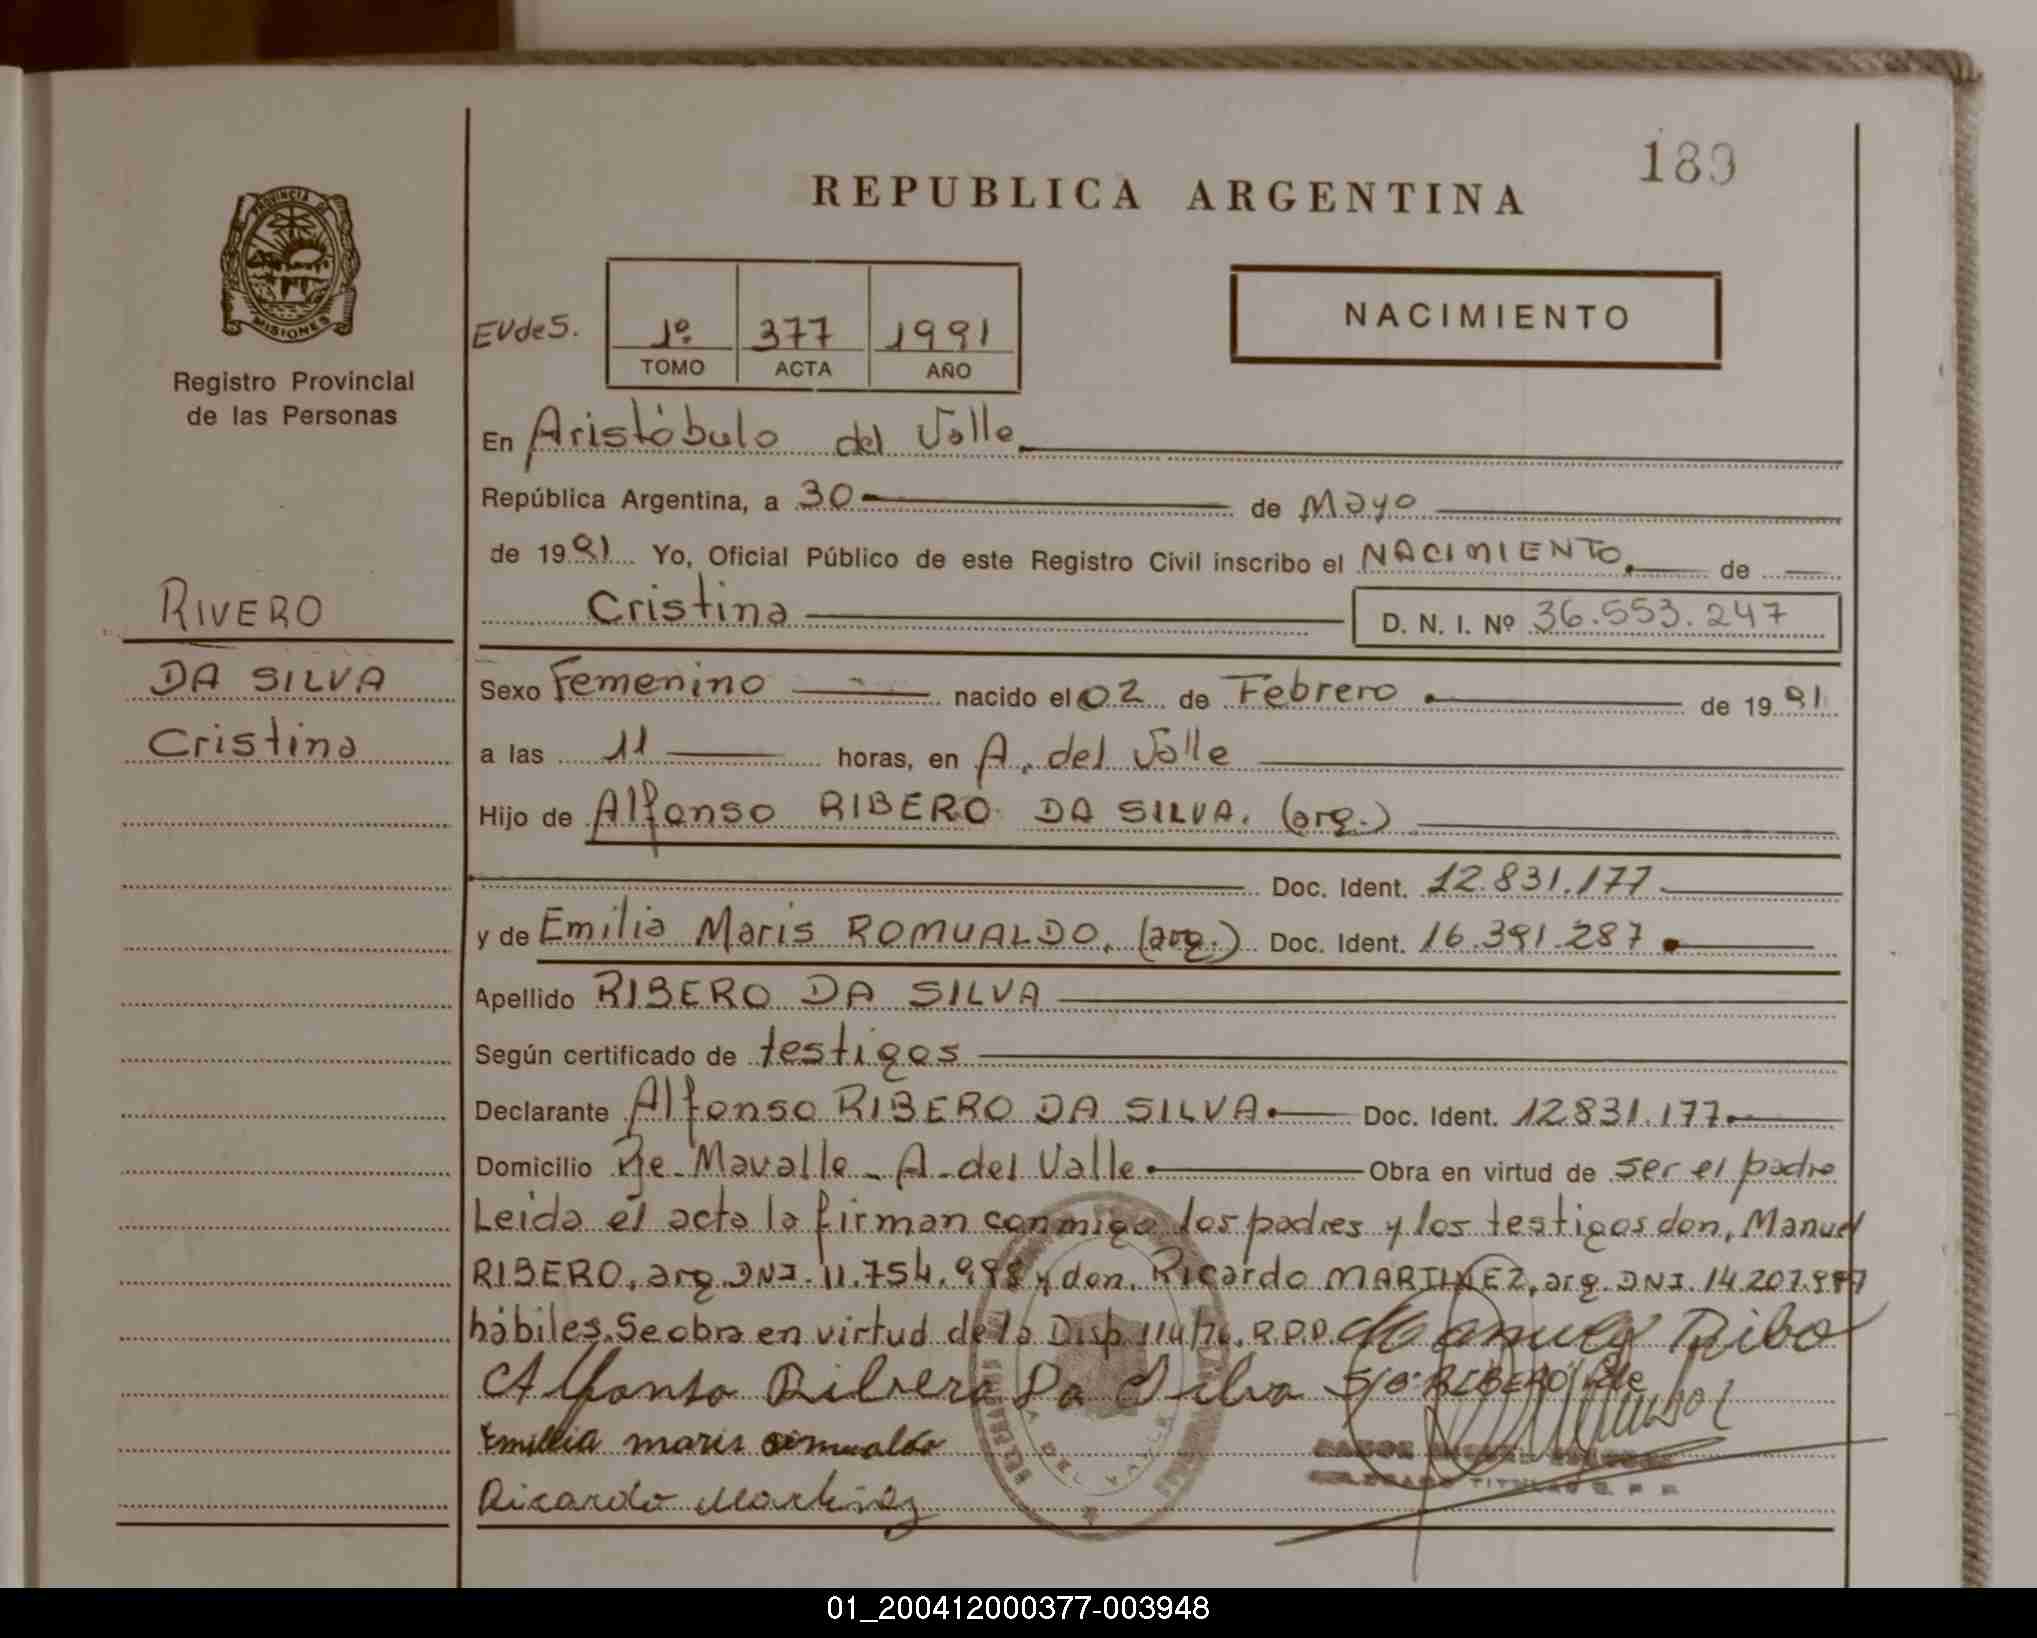 189
REPUBLICA ARGENTINA
PROVINCIA DE
MISIONES
Registro Provincial
de las Personas
EVdeS.
1º 377 1991
TOMO ACTA AÑO
NACIMIENTO
En Aristóbulo del Valle
República Argentina, a 30 de Mayo
de 1991 Yo, Oficial Público de este Registro Civil inscribo el NACIMIENTO. de
Cristina D. N. I. Nº 36.553.247
RIVERO
DA SILVA
Cristina
Sexo Femenino nacido el 02 de Febrero de 1991
a las 11 horas, en A. del Valle
Hijo de Alfonso RIBERO DA SILVA. (arg.)
Doc. Ident. 12.831.177
y de Emilia Maris ROMUALDO. (arg.) Doc. Ident. 16.391.287
Apellido RIBERO DA SILVA
Según certificado de testigos
Declarante Alfonso RIBERO DA SILVA. Doc. Ident. 12831.177.
Domicilio Pje-Mavalle - A-del Valle. Obra en virtud de ser el padre
Leida el acta la firman conmigo los padres y los testigos don, Manuel
RIBERO, arg. DNI. 11.754.998 y don. Ricardo MARTINEZ, arg. DNI. 14.207.997
hábiles. Se obra en virtud de la Disp. 114/76. R.P.P. Manuel Ribo
Alfonso Rilvera Da Silva S/o: RIBERO Vale
Emilia maris romualdo
Ricardo Martinez
TITULAR R. P. P.
01_200412000377-003948